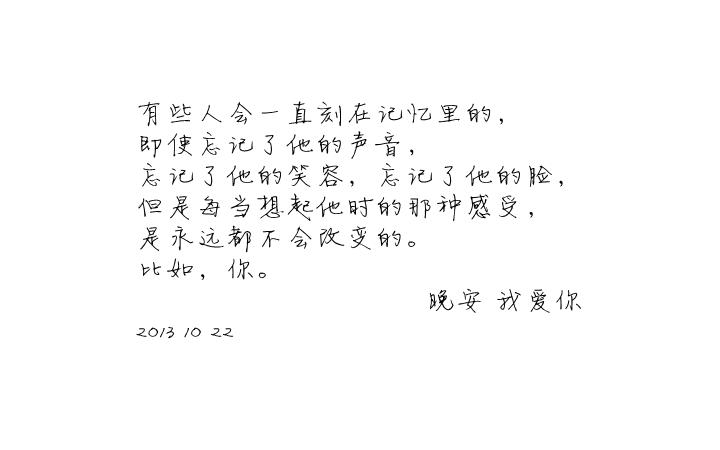 有些人会一直刻在记忆里的，
即使忘记了他的声音，
忘记了他的笑容，忘记了他的脸，
但是每当想起他时的那种感受，
是永远都不会改变的。
比如，你。
晚安 我爱你
2013 10 22